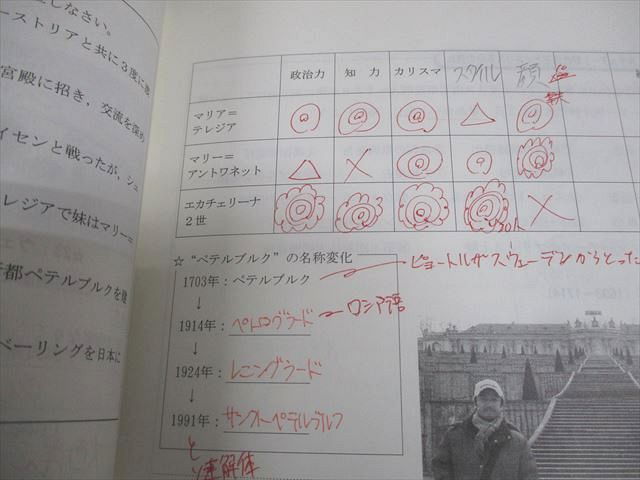 しなさい。
ーストリアと共に3度に
宮殿に招き，交流を深め
イセンと戦ったが，シュ
レジアで妹はマリー＝
都ペテルブルクを
ベーリングを日本に
政治力 知 力 カリスマ スタイル 顔
マリア＝
テレジア
マリー＝
アントワネット
エカチェリーナ
2世
☆ “ペテルブルク” の名称変化
1703年：ペテルブルク ピョートルがスウェーデンからとった
↓
1914年：ペトログラード ロシア語
↓
1924年：レニングラード
↓
1991年：サンクトペテルブルク
ソ連解体